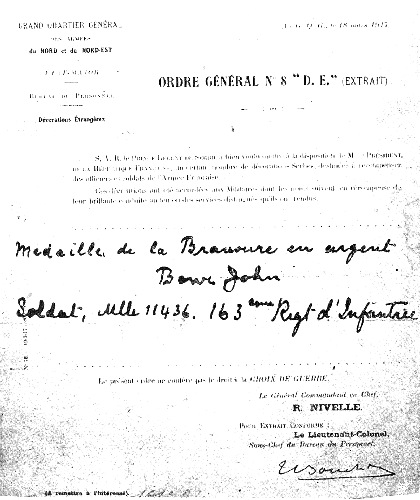 GRAND QUARTIER GÉNÉRAL
DES ARMÉES
du NORD et du NORD-EST
ÉTAT-MAJOR
BUREAU DU PERSONNEL
Décorations Étrangères
Au G. Q. G., le 18 mars 1917
ORDRE GÉNÉRAL N° 8 "D. E." (EXTRAIT)
S. A. R. le PRINCE RÉGENT DE SERBIE a bien voulu mettre à la disposition de M. le PRÉSIDENT
DE LA RÉPUBLIQUE FRANÇAISE, un certain nombre de décorations Serbes, destinées à récompenser
les officiers et soldats de l'Armée Française.
Ces décorations ont été accordées aux Militaires dont les noms suivent, en récompense de
leur brillante conduite au feu ou des services distingués qu'ils ont rendus.
Medaille de la Bravoure en argent
Bowe John
Soldat, Mlle 11436. 163 eme Regt d'Infantrie
Le présent ordre ne confère pas le droit à la CROIX DE GUERRE.
Le Général Commandant en Chef,
R. NIVELLE.
POUR EXTRAIT CONFORME :
Le Lieutenant-Colonel,
Sous-Chef du Bureau du Personnel,
(A remettre à l'intéressé)